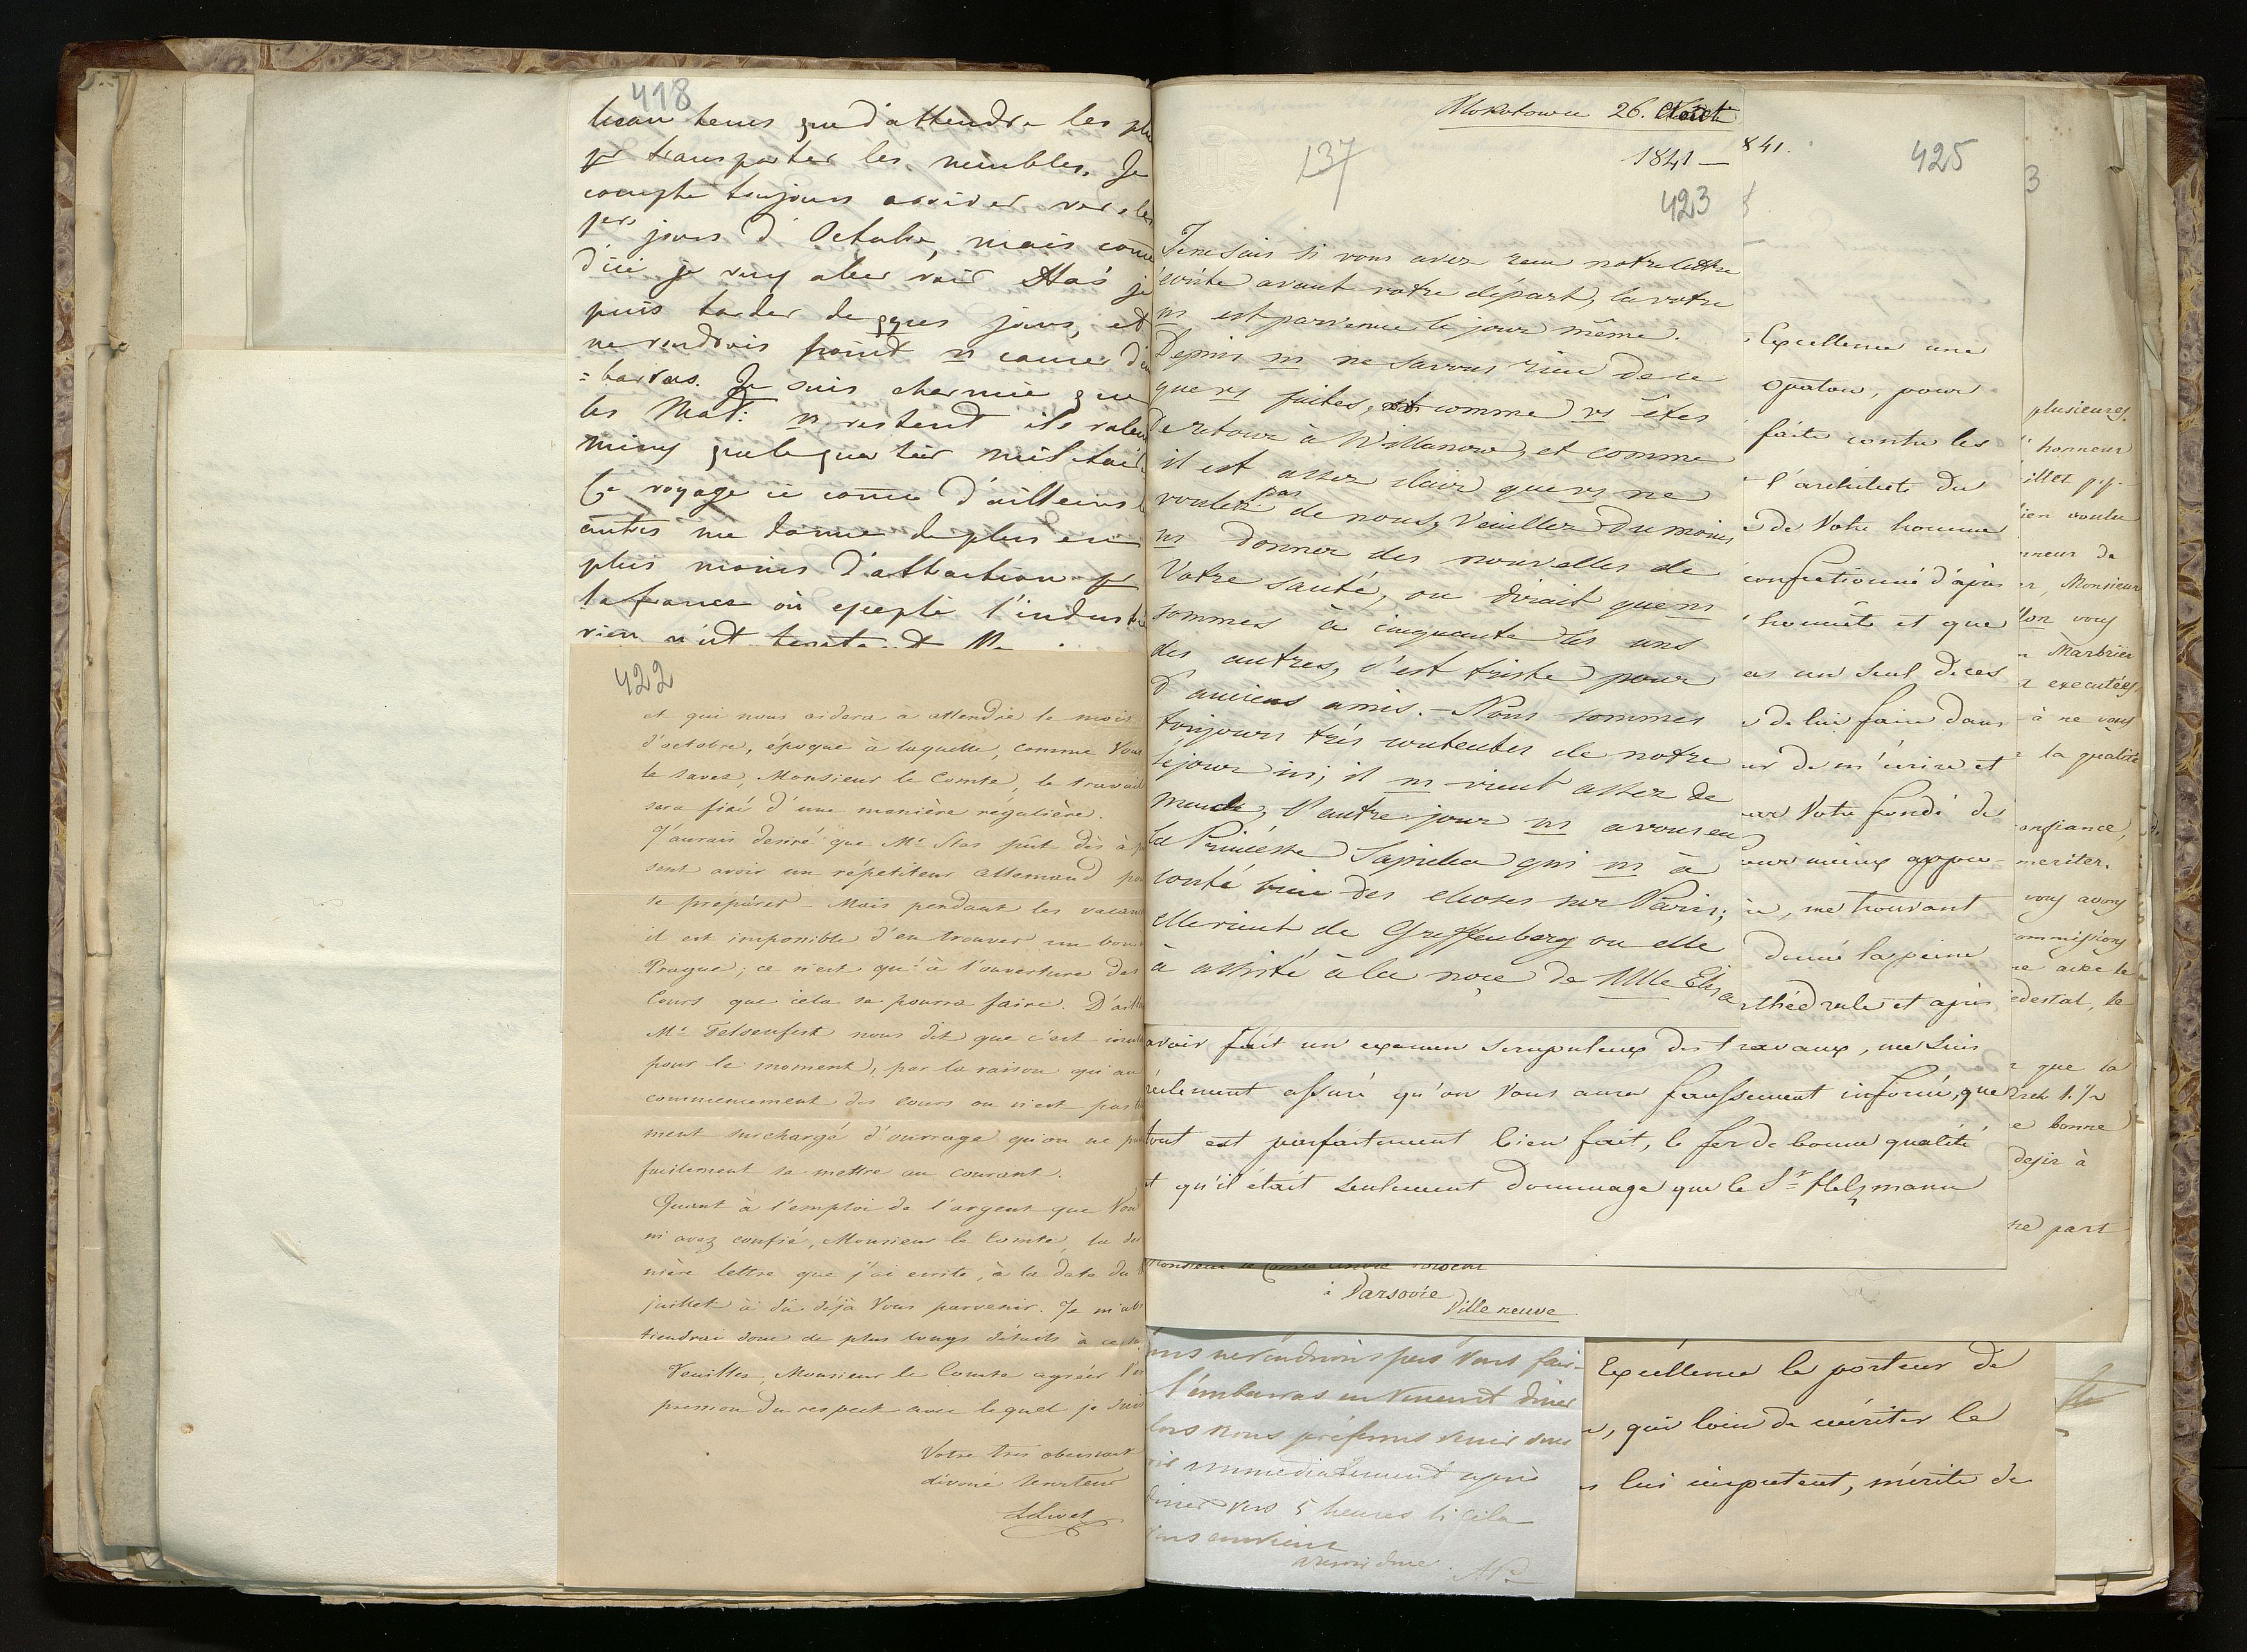 418
beau tems que d'attendre les plu
pr transporter les meubles. Je
compte toujours arriver vers les
1ers jours d'Octobre, mais come
d'ici je veux aller voir Stas je
puis tarder de qques jours, et
ne voudrois point vs causer d'em
=barras. Je suis charmée que
les Mad: vs restent ils valent
mieux que le quartier militaire
Ce voyage ci come d'ailleurs l
autres me donne de plus en
plus moins d'attraction pr
la france où excepté l'industrie
rien n'est
422
et qui nous aidera à attendre le mois
d'octobre, époque à laquelle, comme Vous
le savez, Monsieur le Comte, le travail
sera fixé d'une manière régulière.
J'aurais desiré que Mr Stas pût dès à p
sent avoir un répétiteur allemand po
le préparer. Mais pendant les vacan
il est impossible d'en trouver un bon
Prague; ce n'est qu'à l'ouverture des
Cours que cela se pourra faire. D'aill
Mr Felsenfest nous dit que c'est inut
pour le moment, par la raison qu'au
commencement des cours on n'est pas
ment surchargé d'ouvrage qu'on ne pu
facilement se mettre au courant.
Quant à l'emploi de l'argent que Vou
m'avez confié, Monsieur le Comte, la der
nière lettre que j'ai écrite, à la date du
juillet a dû déjà Vous parvenir. Je m'abs
tiendrai donc de plus longs détails à ce su
Veuillez, Monsieur le Comte agréer l'ex
pression du respect avec lequel je suis
Votre très obéissant
dévoué serviteur
Mokotowu 26. Août
1841 —
137
423
Je ne sais si vous avez reçu notre lettre
écrite avant votre départ, la votre
ns est parvenue le jour même.
Depuis ns ne savons rien de ce
que vs faites, et comme vs êtes
de retour à Willanow, et comme
il est assez clair que vs ne
voulez pas de nous, Veuillez du moins
ns donner des nouvelles de
Votre santé, on dirait que ns
sommes à cinquante les uns
des autres, c'est triste pour
d'anciens amis. — Nous sommes
toujours très contentes de notre
séjour ici; il ns vient assez de
monde, l'autre jour ns avons eu
la Princesse Sapieha qui ns à
conté bien des choses sur Paris;
elle vient de Greffenberg ou elle
à assisté à la noce de Mlle Eliza
841.
425
Excellence une
opatow, pour
faite contre les
l'architecte du
de Votre homme
confectionné d'après
honnête et que
as un seul de ces
de lui faire dans
ur de m'écrire et
Votre fondé de
me trouvant
donné la peine
thédrale et après
avoir fait un examen scrupuleux des travaux, me suis
réelement assuré qu'on Vous aura faussement informé, que
tout est parfaitement bien fait, le fer de bonne qualité
et qu'il était seulement dommage que le Sr Helzmann
3
plusieurs
honneur
illet p.p.
ien voulu
nneur de
er, Monsieur
lon vous
n Marbrier
t executées
à ne vous
la qualité
onfiance,
meriter.
vous avons
ommissions
re avec le
edestal, le
que la
e bonne
dejir à
ne part
à Varsovie
Ville neuve
ous ne voudrions pas Vous faire
l'embarras en Venant diner
lors nous préférons venir vous
immediatement après
diner vers 5 heures si cela
Vous convient
Excellence le porteur de
qui loin de mériter le
lui imputent, mérite de